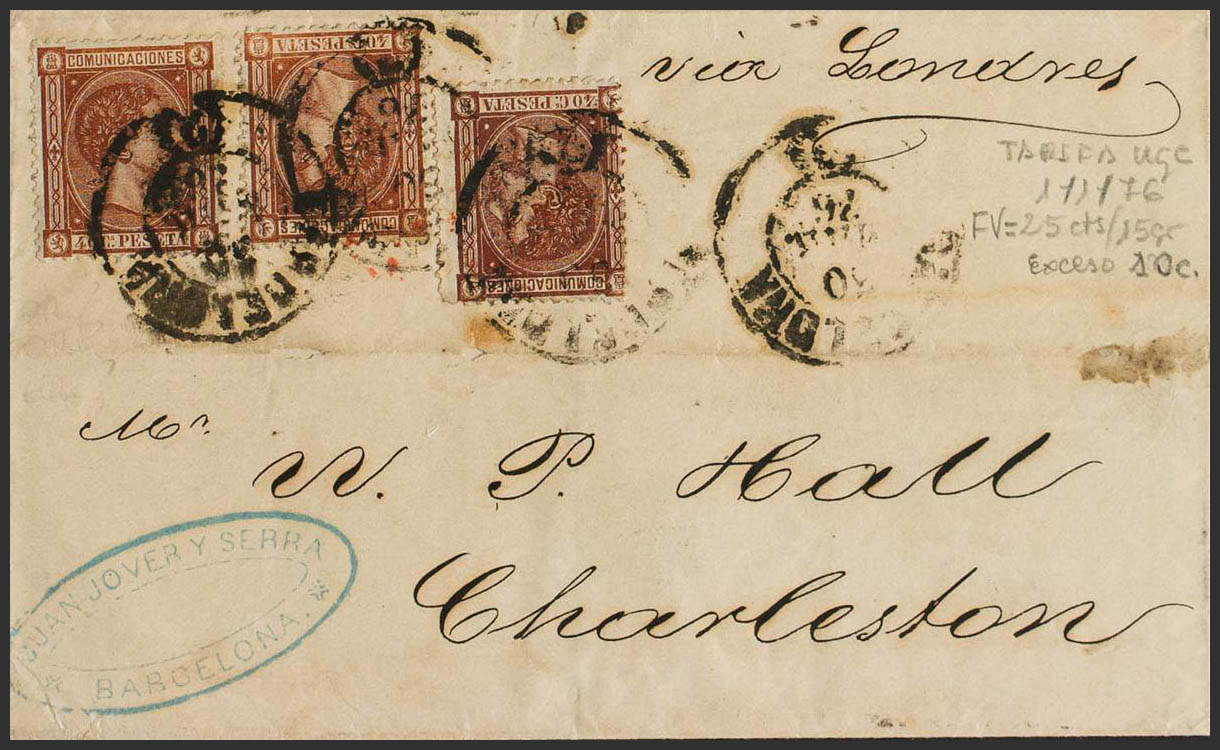 COMUNICACIONES
40 C. PESETA
40 C. PESETA
COMUNICACIONES
40 C. PESETA
COMUNICACIONES
via Londres
TARIFA UGC
1/1/76
FV=25 cts/15gr
Exceso 10c.
Mr.
W. P. Hall
Charleston
JUAN JOVER Y SERRA
BARCELONA.